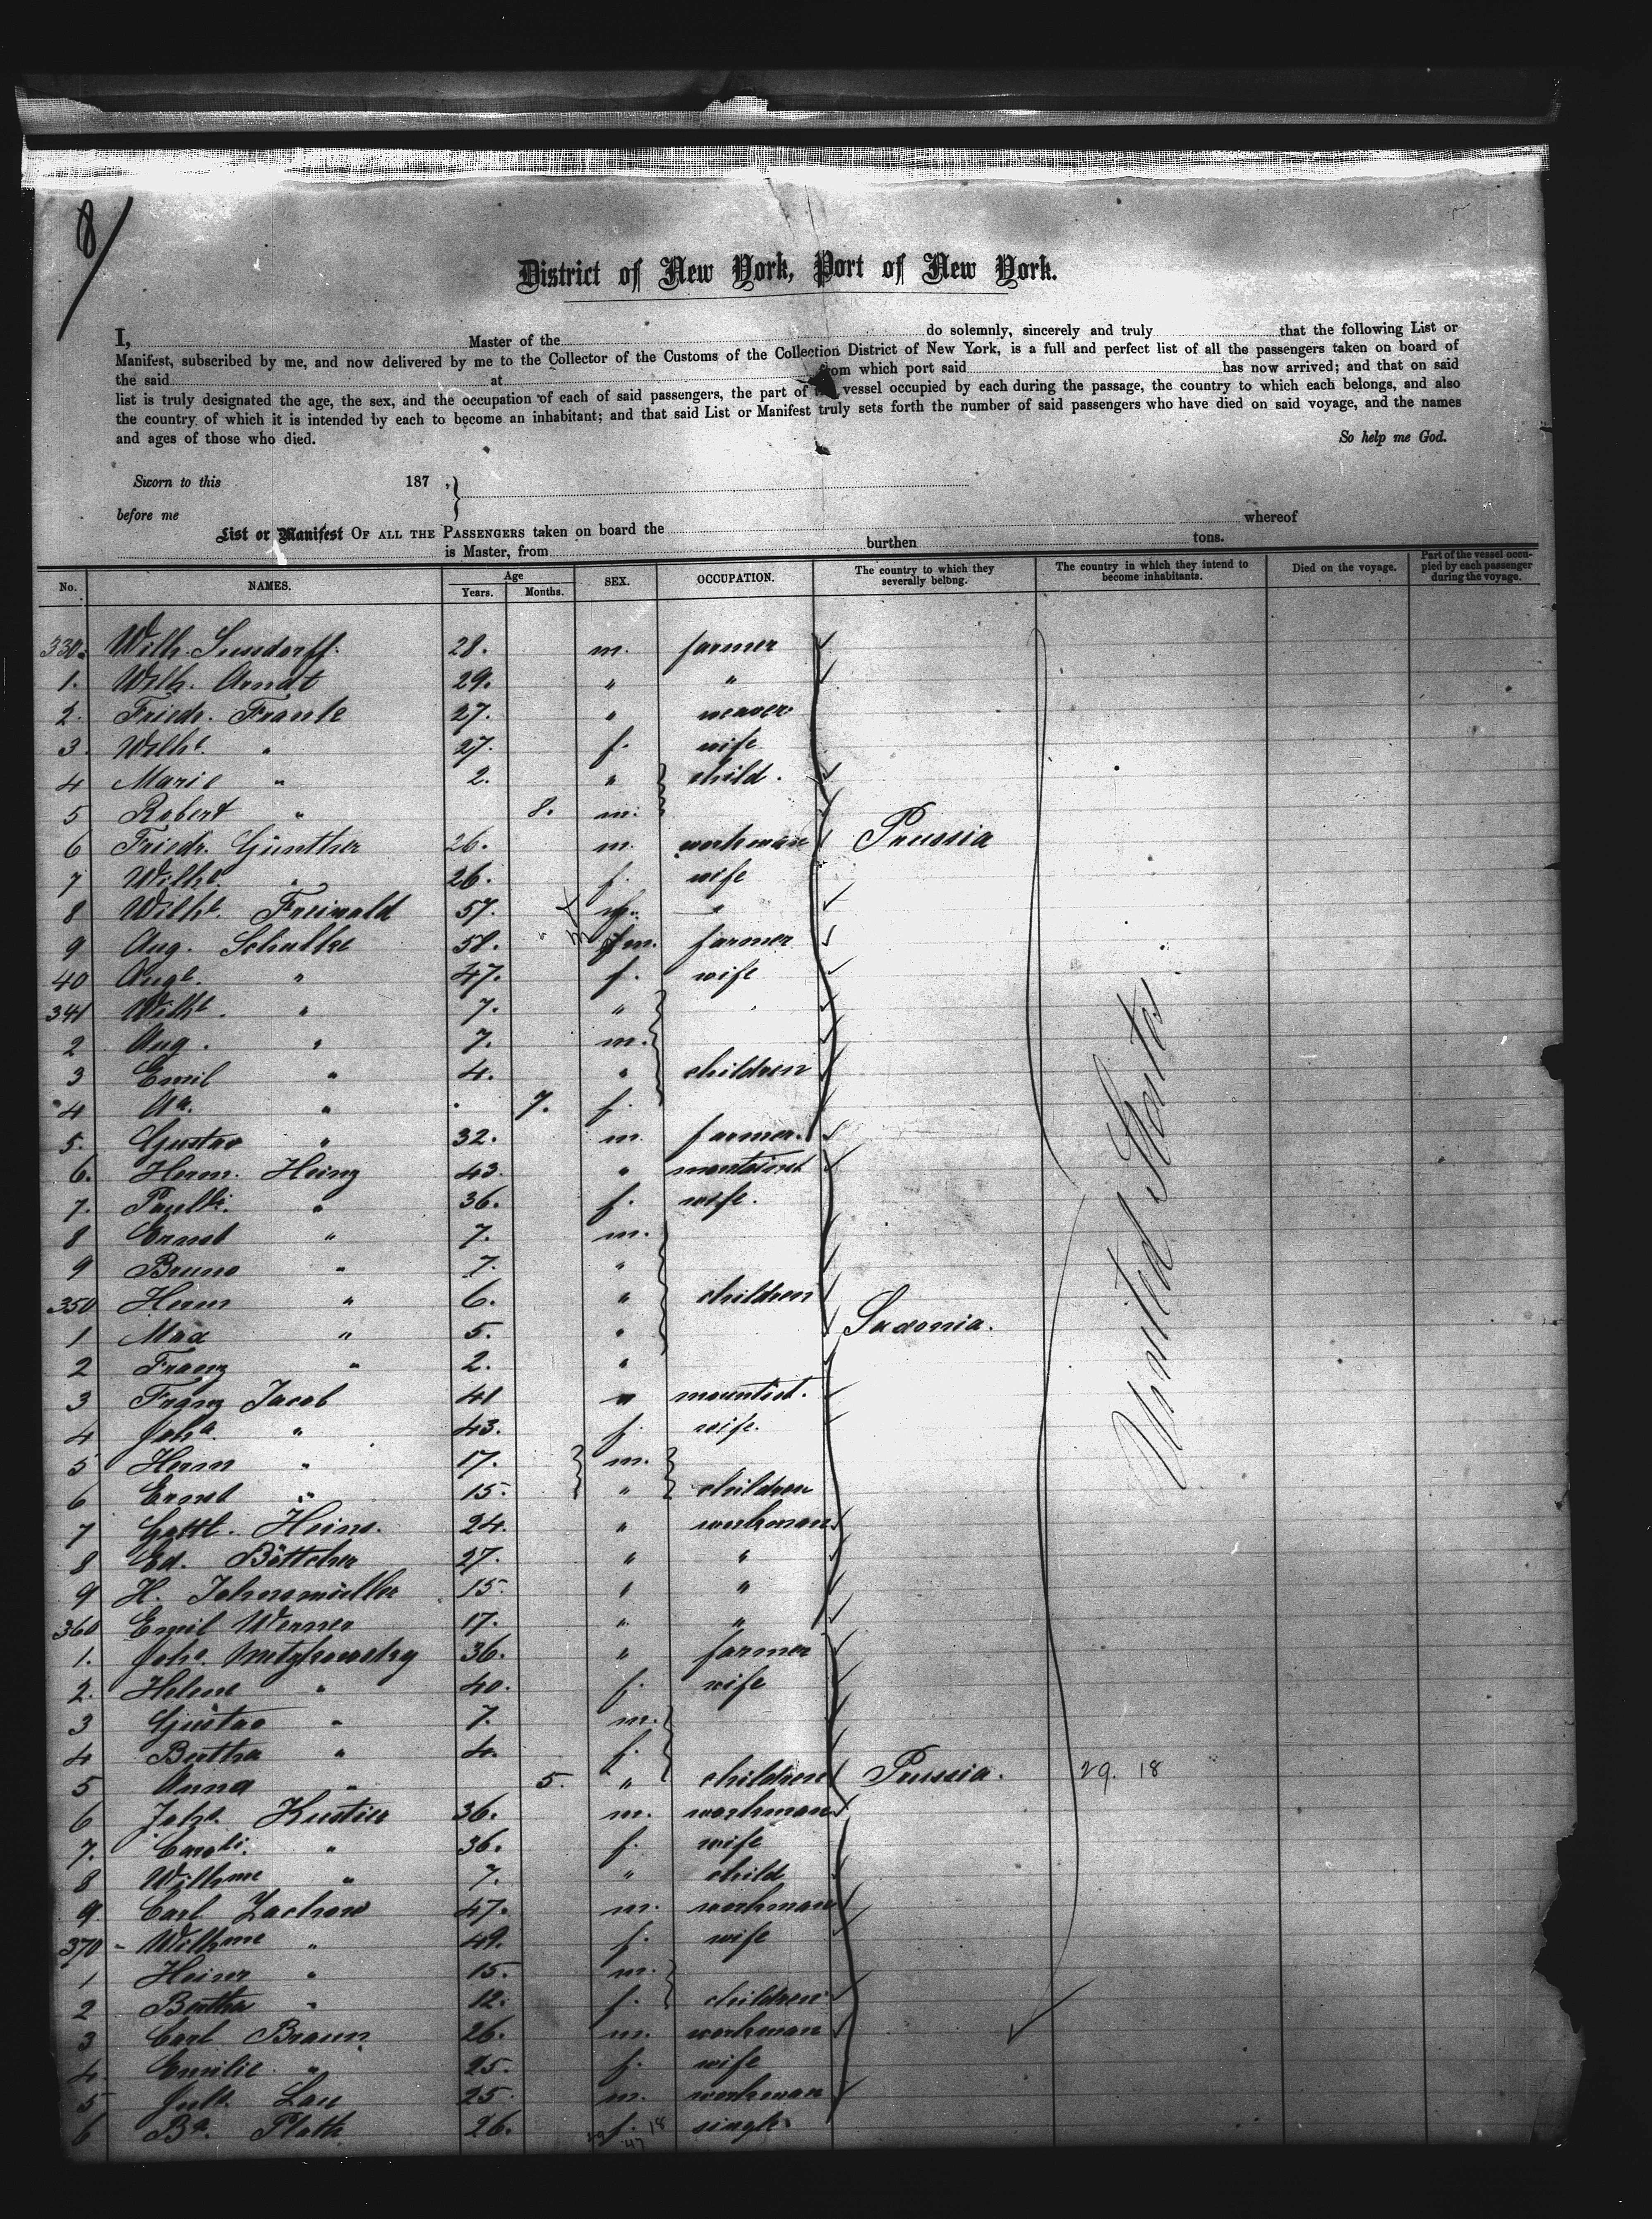 8/
District of New York, Port of New York.
I, Master of the do solemnly, sincerely and truly that the following List or
Manifest, subscribed by me, and now delivered by me to the Collector of the Customs of the Collection District of New York, is a full and perfect list of all the passengers taken on board of
the said at from which port said has now arrived; and that on said
list is truly designated the age, the sex, and the occupation of each of said passengers, the part of vessel occupied by each during the passage, the country to which each belongs, and also
the country of which it is intended by each to become an inhabitant; and that said List or Manifest truly sets forth the number of said passengers who have died on said voyage, and the names
and ages of those who died. So help me God.
Sworn to this 187 ,}
before me
List or Manifest OF ALL THE PASSENGERS taken on board the whereof
is Master, from burthen tons.
No. NAMES. Age Years. Months. SEX. OCCUPATION. The country to which they severally belong. The country in which they intend to become inhabitants. Died on the voyage. Part of the vessel occupied by each passenger during the voyage.
330. Wilh. 28. m. farmer
1. Wilh. Arndt 29. " "
2. Friedr. Franke 27. " weaver
3. Wilhe. " 27. f. wife
4 Marie " 2. " child.
5 Robert " 8. m.
6 Friedr. Günther 26. m. workman Prussia
7 Wilhe. " 26. f. wife
8 Wilhe. Freiwald 57. "
9 Aug. Schultze 58. m. farmer
40 Auge. " 47. f. wife
341 Wilhe. " 7. "
2 Aug. " 7. m.
3 Emil " 4. " children
4 Aa. " 7. f.
5. Gustav " 32. m. farmer.
6. Herm. Heinz 43. "
7. Pauli. " 36. f. wife.
8 Ernst " 7. m.
9 Bruno " 7. "
350 Herm " 6. " children
1 Max " 5. " Saxonia.
2 Franz " 2. "
3 Franz Jacob 41 " mountist.
4 Joha. " 43. f. wife.
5 Herm " 17. m.
6 Ernst " 15. " children
7 Gottl. Heine. 24. " workman
8 Ed. Böttcher 27. " "
9 H. 15. " "
360 Emil Werner 17. " "
1. Johs. 36. " farmer
2. Helene " 40. f. wife
3 Gustav " 7. m.
4 Bertha " 4. f.
5 Anna " 5. " children Prussia. 29. 18
6 Johs. 36. m. workman
7. Caroli. " 36. f. wife
8 Wilhme " 7. " child
9. Carl Zachow 47. m. workman
370 - Wilhme " 49. f. wife
1 Heinr " 15. m.
2 Bertha " 12. f. children
3 Carl Braun 26. m. workman
4. Emilie " 25. f. wife
5 Juls. Lau 25. m. workman
6 Ba. Plath 26. f. single.
29 47 18
United States